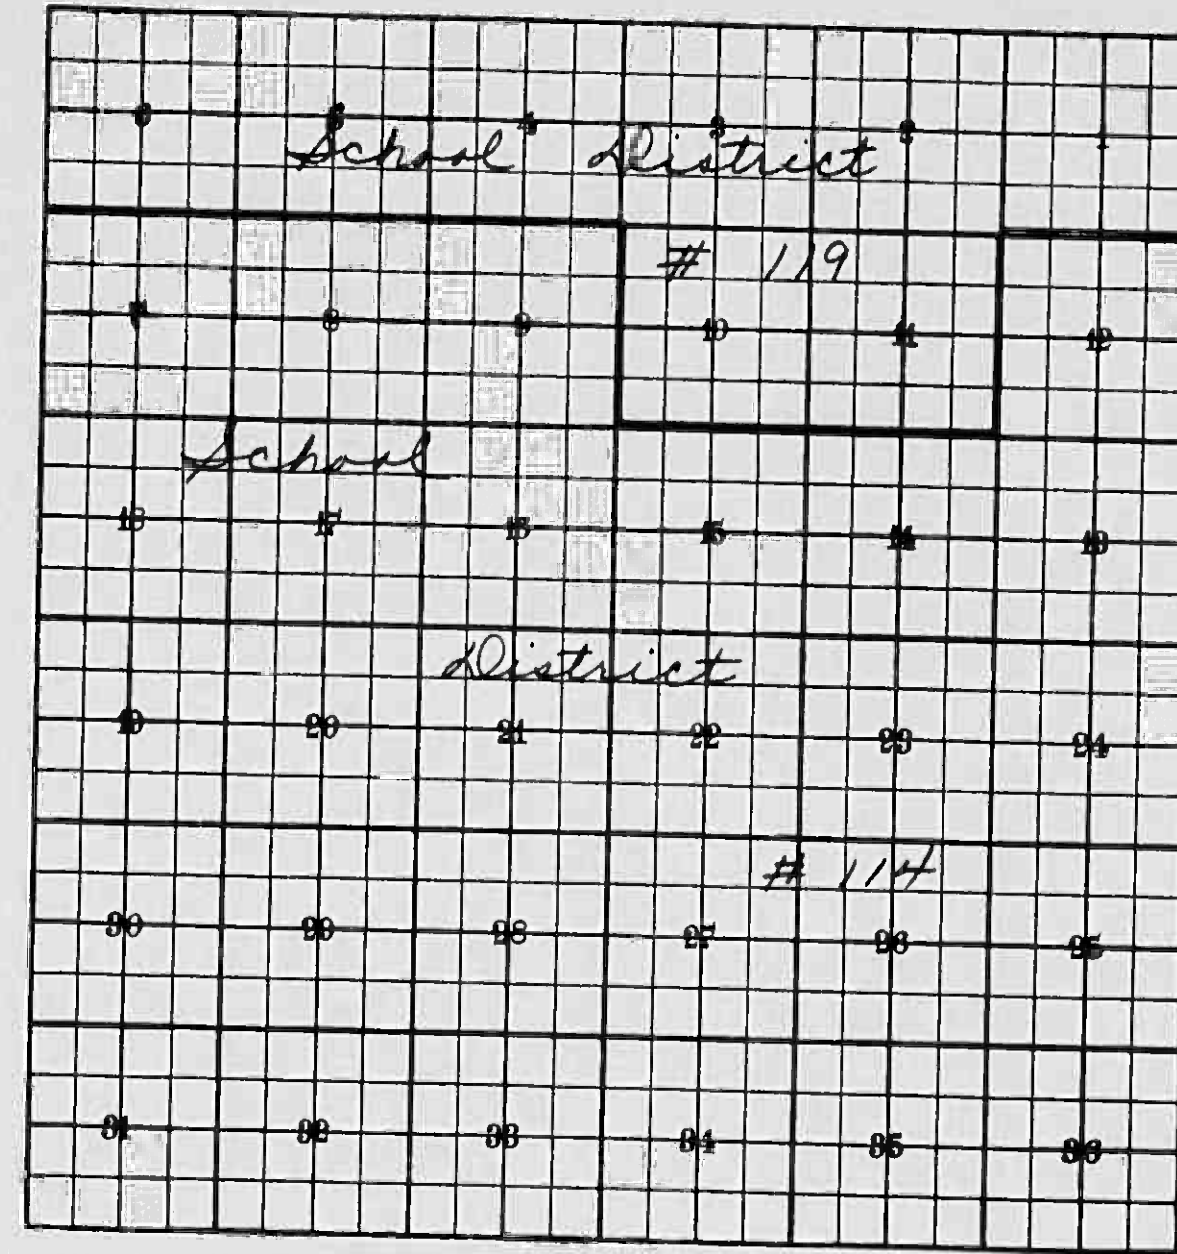 6 5 4 3 2 1
School District
# 119
7 8 9 10 11 12
School
18 17 16 15 14 13
District
19 20 21 22 23 24
# 114
30 29 28 27 26 25
31 32 33 34 35 36